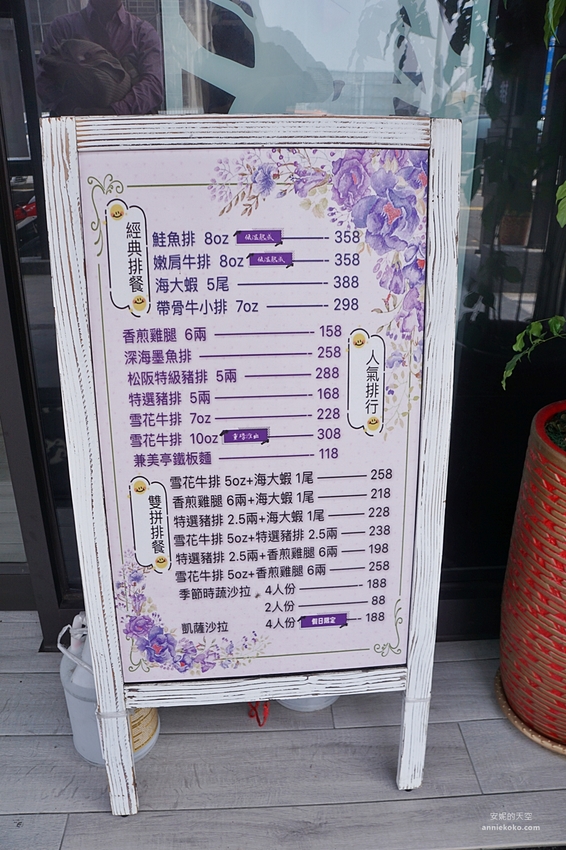 經典排餐
鮭魚排 8oz 低溫熟成 358
嫩肩牛排 8oz 低溫熟成 358
海大蝦 5尾 388
帶骨牛小排 7oz 298
人氣排行
香煎雞腿 6兩 158
深海墨魚排 258
松阪特級豬排 5兩 288
特選豬排 5兩 168
雪花牛排 7oz 228
雪花牛排 10oz 308
兼美亭鐵板麵 118
雙拼排餐
雪花牛排 5oz+海大蝦 1尾 258
香煎雞腿 6兩+海大蝦 1尾 218
特選豬排 2.5兩+海大蝦 1尾 228
雪花牛排 5oz+特選豬排 2.5兩 238
特選豬排 2.5兩+香煎雞腿 6兩 198
雪花牛排 5oz+香煎雞腿 6兩 258
季節時蔬沙拉 4人份 188
2人份 88
凱薩沙拉 4人份 假日限定 188
安妮的天空
anniekoko.com